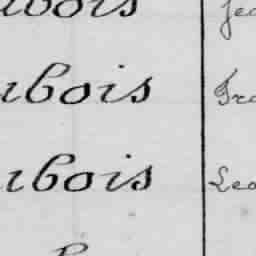 ubois Jea
ubois Fra
ubois Leo